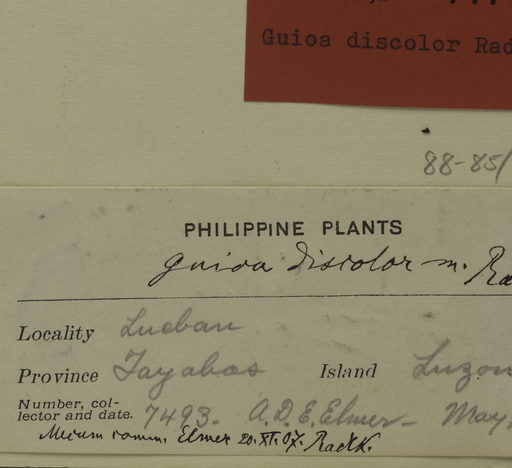 Guioa discolor Rad
88-85/
PHILIPPINE PLANTS
Guioa discolor m. Ra
Locality Lucban
Province Tayabas Island Luzon
Number, col-
lector and date. 7493. A.D.E. Elmer - May
Mecum comm. Elmer 20.XI.07. Radlk.